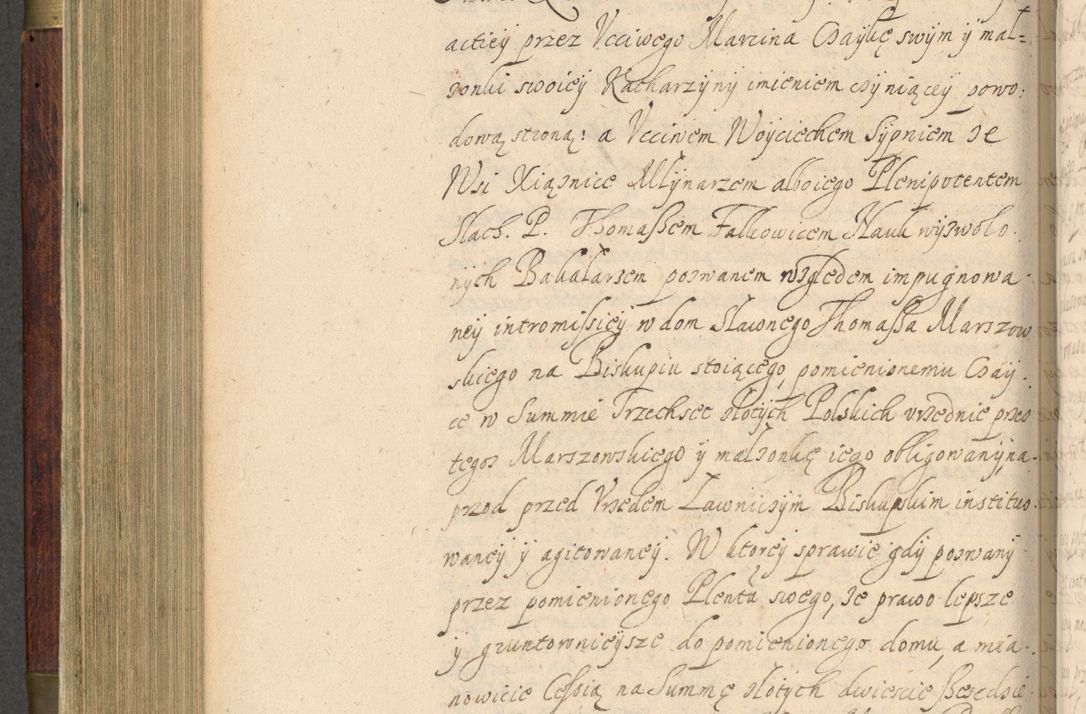 actiey przez Vcciwego Marcina Czaykę swym y mal=
żonki swoiey Katharzyny imieniem czyniącey powo:
dową stroną: a Vcciwem Woyciechem Sypniem ze
Wsi Xiąznice Młynarzem albo iego Plenipotentem
Slach. P. Thomaßem Falkowicem Nauk wyzwolo.
nych Bakalarzem pozwanem względem impugnowa-
ney intromissiey w dom Sławnego Thomaßa Marszow
skiego na Biskupiu stoiącego, pomienionemu Czay-
ce w Summie Trzechset złotych Polskich vrzędnie przez
tegoz Marszowskiego y małżonkę iego obligowany, na-
przod przed Vrzędem Ławniczym Biskupskim instituo-
waney y agitowaney. W ktorey sprawie gdy pozwany
przez pomienionego Plenta swego, ze prawo lepsze
y gruntownieysze do pomienionego domu, a mia-
nowicie Cessią na Summę złotych dwieście ßescdzie